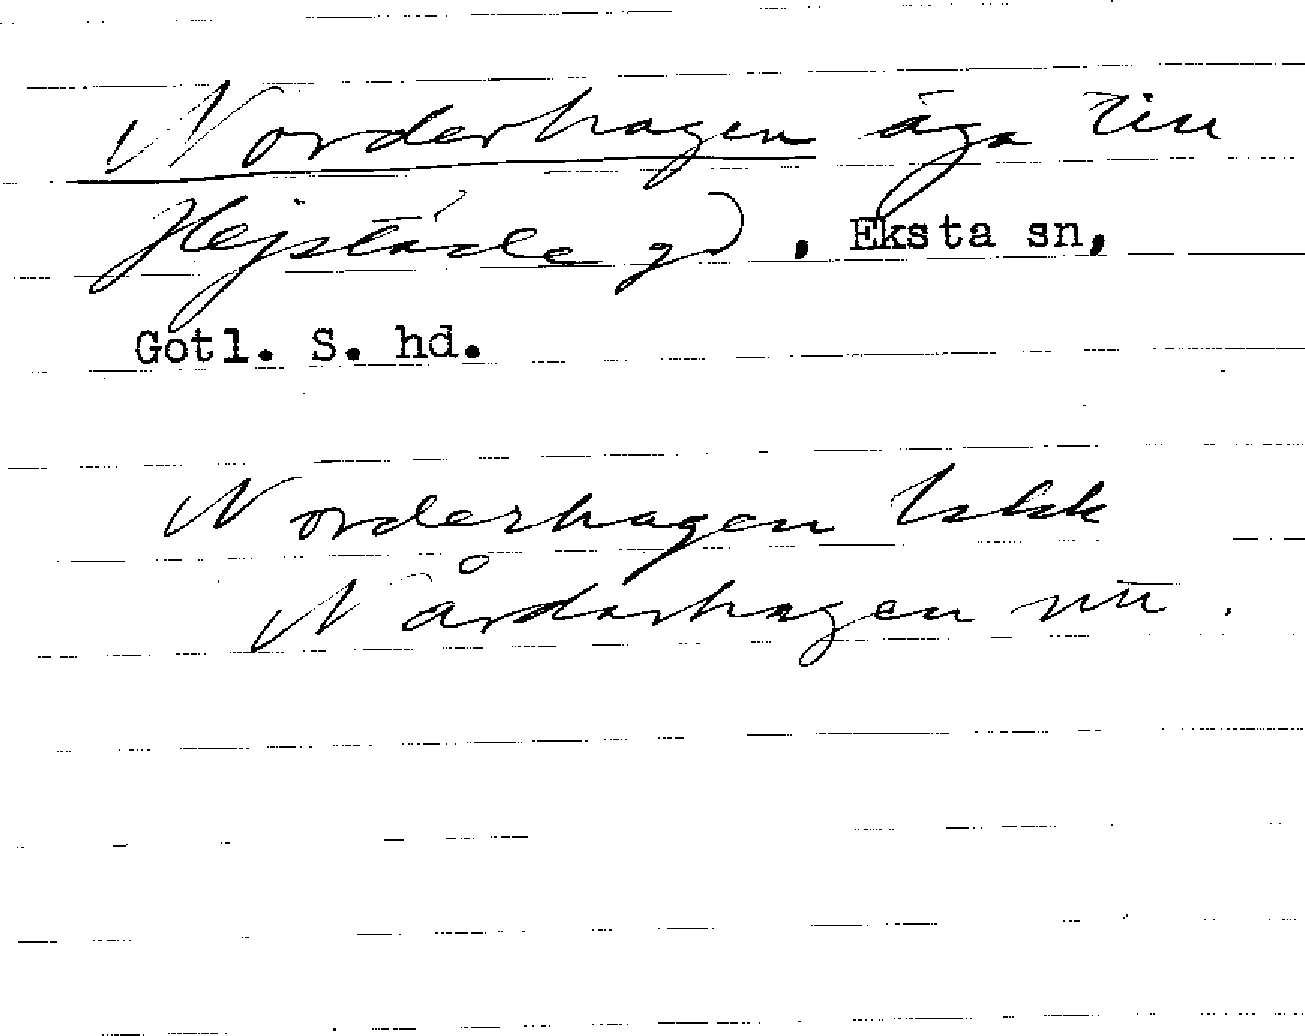 Norderhagen äga till
Hejstäde gd, Eksta sn,
Gotl. S. hd.
Norderhagen
Nårdarhagen